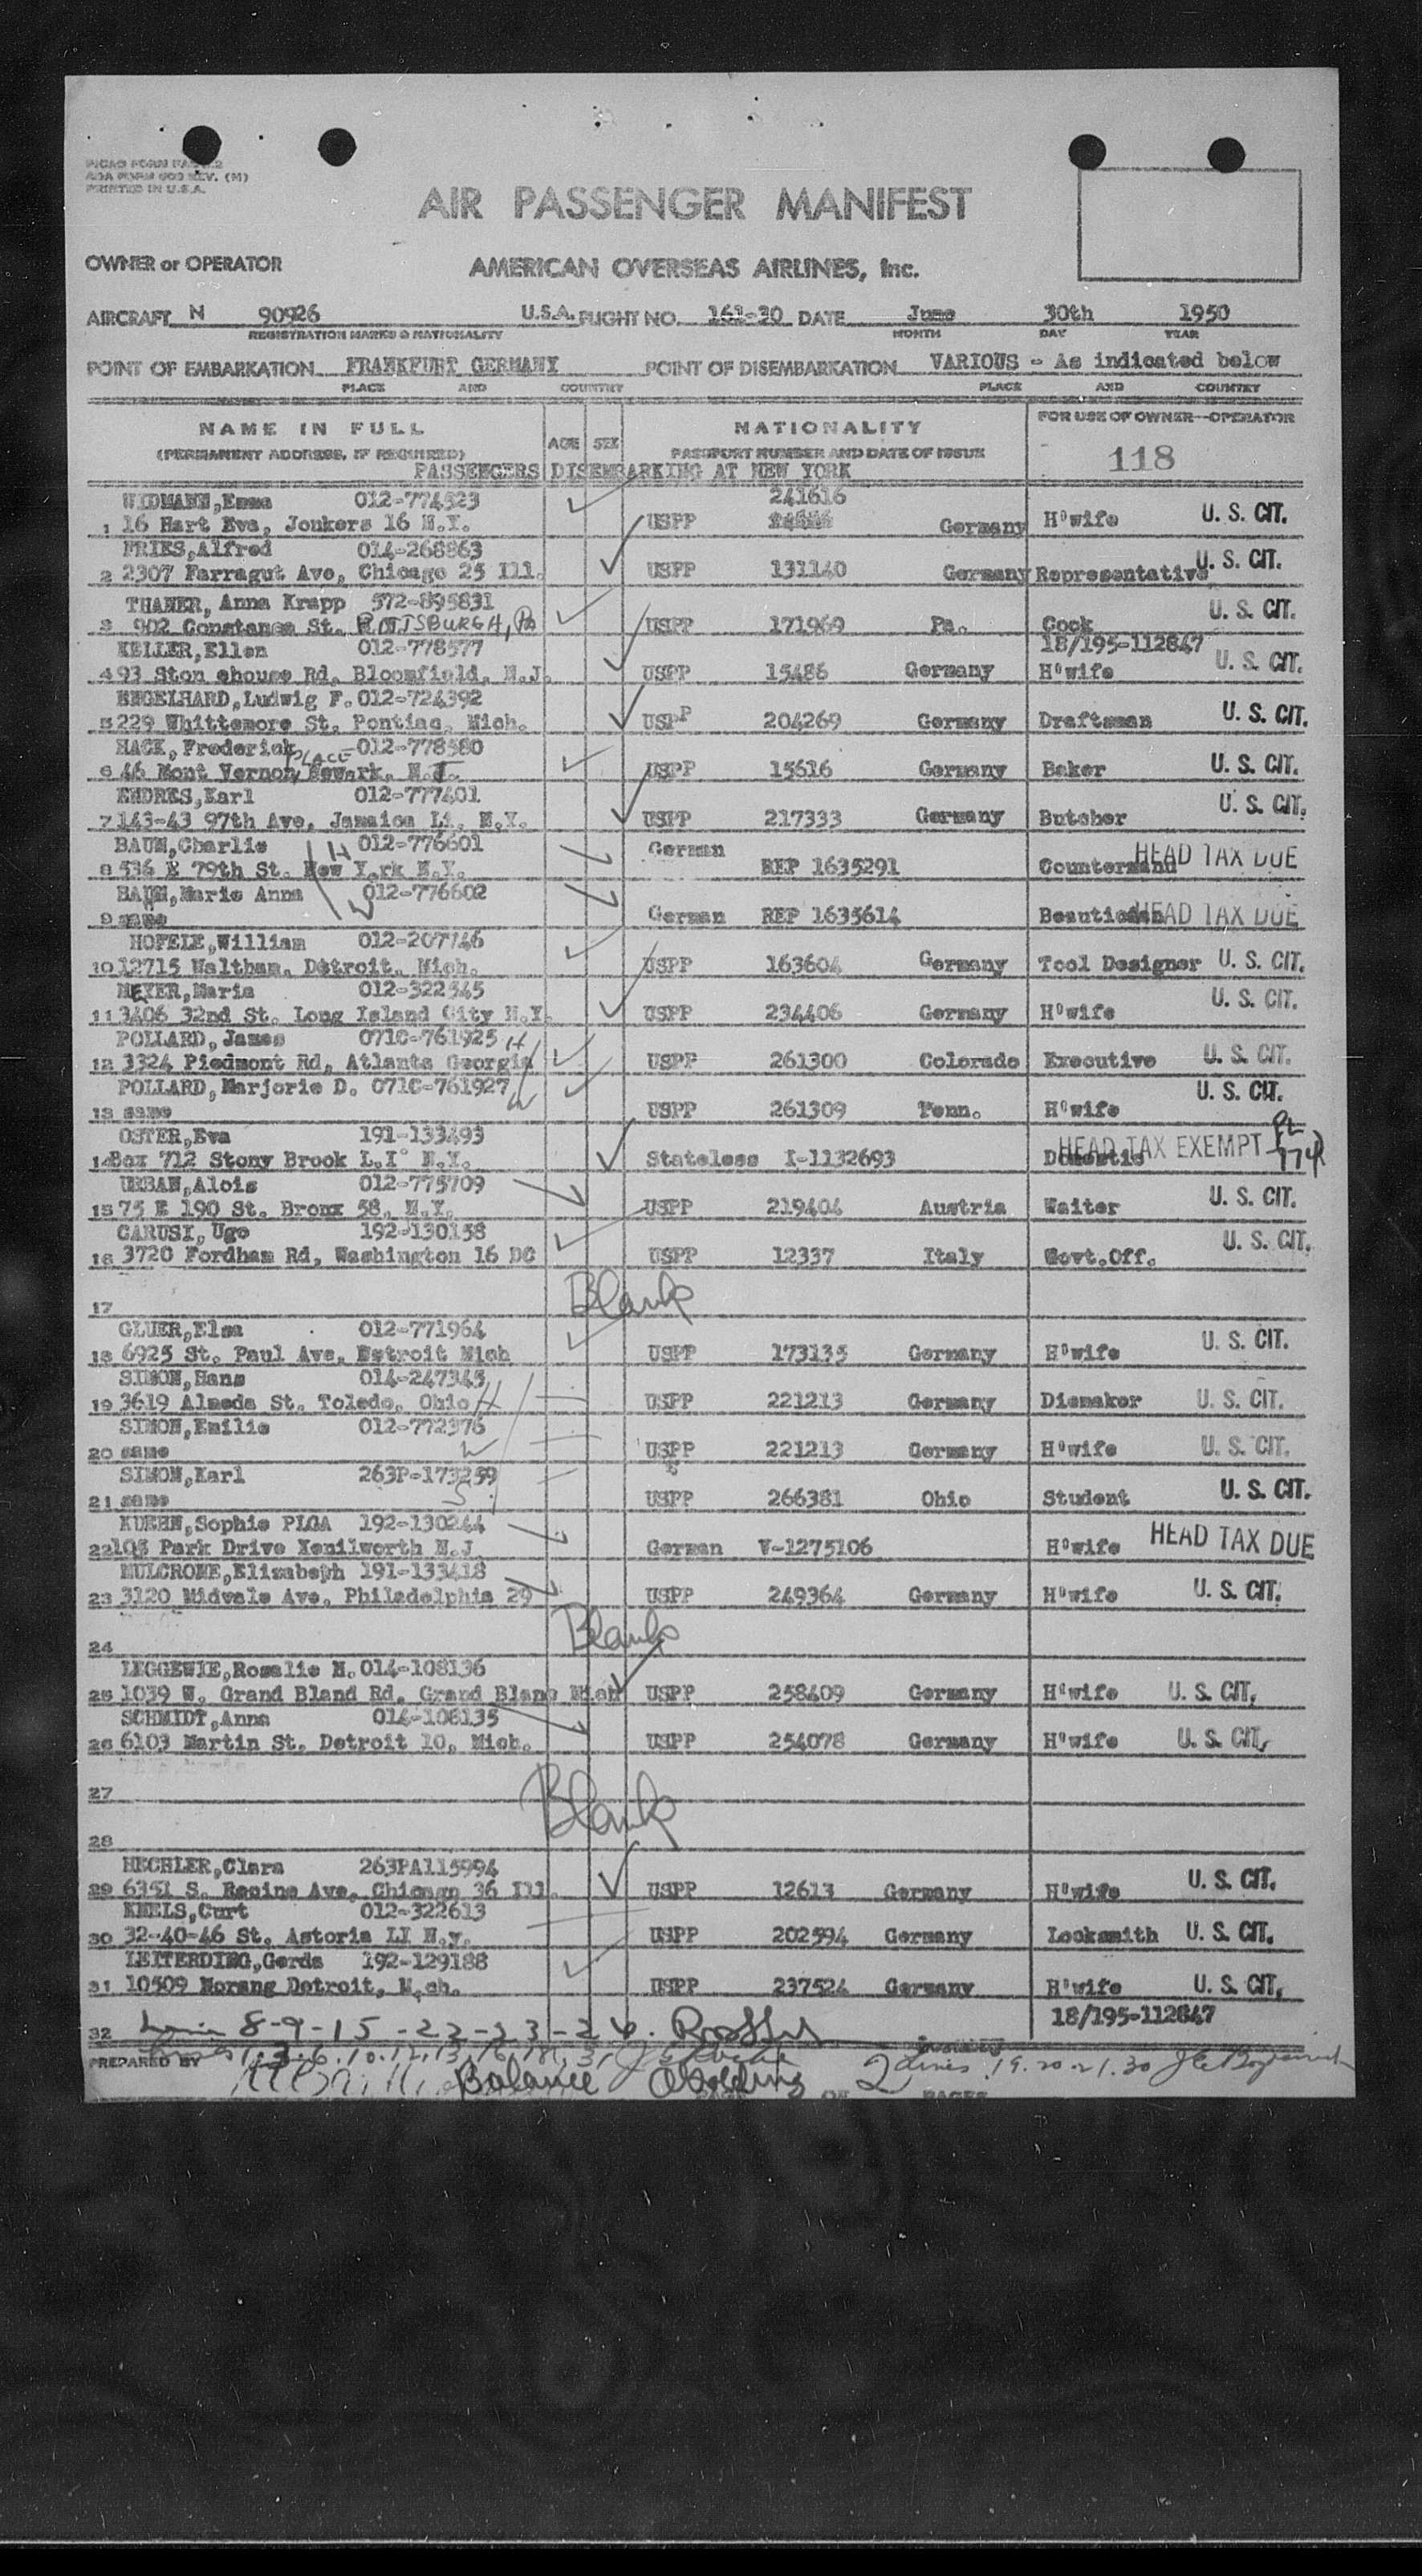 PRINTED IN U.S.A.
AIR PASSENGER MANIFEST
OWNER or OPERATOR AMERICAN OVERSEAS AIRLINES, Inc.
AIRCRAFT N 90926 U.S.A. FLIGHT NO. DATE June 30th 1950
REGISTRATION MARKS & NATIONALITY MONTH DAY YEAR
POINT OF EMBARKATION FRANKFURT GERMANY POINT OF DISEMBARKATION VARIOUS - As indicated below
PLACE AND COUNTRY PLACE AND COUNTRY
NAME IN FULL AGE SEX NATIONALITY FOR USE OF OWNER-OPERATOR
(PERMANENT ADDRESS, IF REQUIRED) PASSPORT NUMBER AND DATE OF ISSUE 118
PASSENGERS DISEMBARKING AT NEW YORK
WIDMANN,Emma 012-774523 241616
1 16 Hart Eva, Jonkers 16 N.Y. USPP Germany H'wife U. S. CIT.
FRIES,Alfred 014-268863
2 2307 Farragut Ave, Chicago 25 Ill. USPP 131140 Germany Representative U. S. CIT.
THANER, Anna Krapp 572-895831
3 902 Constance St. PITTSBURGH, Pa USPP 171969 Pa. Cook U. S. CIT.
KELLER,Ellen 012-778577 18/195-112847
4 93 Ston ehouse Rd, Bloomfield, N.J. USPP 15486 Germany H'wife U. S. CIT.
ENGELHARD,Ludwig F. 012-724392
5 229 Whittemore St. Pontiac, Mich. USPP 204269 Germany Draftsman U. S. CIT.
HACK, Frederick 012-778580
6 46 Mont Vernon PLACE Newark, N.J. USPP 15616 Germany Baker U. S. CIT.
ENDRES,Karl 012-777401
7 143-43 97th Ave, Jamaica Li, N.Y. USPP 217333 Germany Butcher U. S. CIT.
BAUM,Charlie H 012-776601 German
8 536 E 79th St. New York N.Y. REP 1635291 Countermand HEAD TAX DUE
BAUM,Marie Anna W 012-776602
9 same German REP 1635614 Beautician HEAD TAX DUE
HOFELE,William 012-207746
10 12715 Waltham, Detroit, Mich. USPP 163604 Germany Tool Designer U. S. CIT.
MEYER,Maria 012-322545
11 3406 32nd St. Long Island City N.Y. USPP 234406 Germany H'wife U. S. CIT.
POLLARD, James 071C-761925 H
12 3324 Piedmont Rd, Atlanta Georgia USPP 261300 Colorado Executive U. S. CIT.
POLLARD, Marjorie D. 071C-761927 W
13 same USPP 261309 Tenn. H'wife U. S. CIT.
OSTER,Eva 191-133493
14 Box 712 Stony Brook L.I. N.Y. Stateless I-1132693 Domestic HEAD TAX EXEMPT PL 774
URBAN,Alois 012-775709
15 75 E 190 St. Bronx 58, N.Y. USPP 219404 Austria Waiter U. S. CIT.
CARUSI, Ugo 192-130158
16 3720 Fordham Rd, Washington 16 DC USPP 12337 Italy Govt.Off. U. S. CIT.
17 Blank
GLUER,Elsa 012-771964
18 6925 St. Paul Ave, Detroit Mich USPP 173135 Germany H'wife U. S. CIT.
SIMON,Hans 014-247345
19 3619 Almeda St. Toledo, Ohio H USPP 221213 Germany Diemaker U. S. CIT.
SIMON,Emilie 012-772376
20 same W USPP 221213 Germany H'wife U. S. CIT.
SIMON,Karl 263P-173259
21 same S USPP 266381 Ohio Student U. S. CIT.
KUEHN,Sophie PLGA 192-130244
22 103 Park Drive Kenilworth N.J. German V-1275106 H'wife HEAD TAX DUE
MULCRONE,Elizabeth 191-133418
23 3120 Midvale Ave. Philadelphia 29 USPP 249364 Germany H'wife U. S. CIT.
24 Blank
LEGGEWIE,Rosalie M. 014-108136
25 1039 W. Grand Bland Rd. Grand Blanc Mich USPP 258409 Germany H'wife U. S. CIT.
SCHMIDT,Anna 014-108135
26 6103 Martin St. Detroit 10, Mich. USPP 254078 Germany H'wife U. S. CIT.
27
28 Blank
HECHLER,Clara 263PA115994
29 6351 S. Racine Ave, Chicago 36 Ill. USPP 12613 Germany H'wife U. S. CIT.
KNELS,Curt 012-322613
30 32-40-46 St. Astoria LI N.y. USPP 202594 Germany Locksmith U. S. CIT.
LEITERDING,Gerda 192-129188
31 10509 Norang Detroit, Mich. USPP 237524 Germany H'wife U. S. CIT.
18/195-112847
32 8-9-15-22-23-26.
PREPARED BY lines 19.20.21.30
Balance PAGE 2 OF PAGES